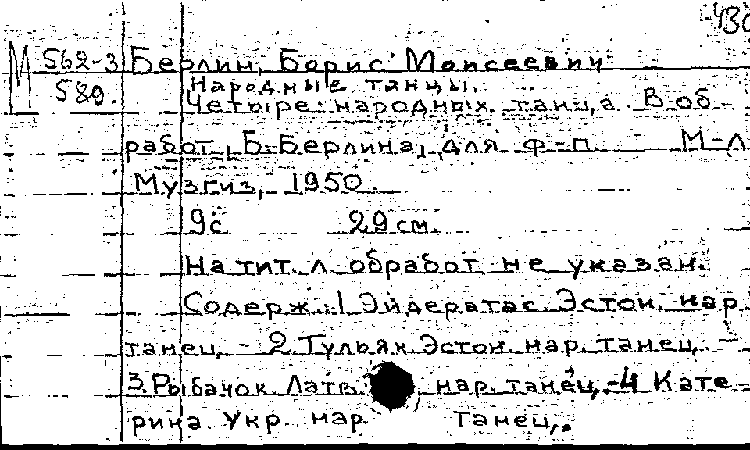 430
М 562-3 Берлин, Борис Моисеевич
589. Народные танцы.
Четыре народных танца. В об
работ. Б. Берлина, для ф-п. М-Л
Музгиз, 1950.
9с 29 см.
На тит. л. обработ не указан.
Содерж.: 1 Эйдератас. Эстон. нар.
танец. - 2 Тульяк. Эстон. нар. танец. -
3. Рыбачок. Латв. нар. танец, -4 Кате
рина. Укр. нар. танец.